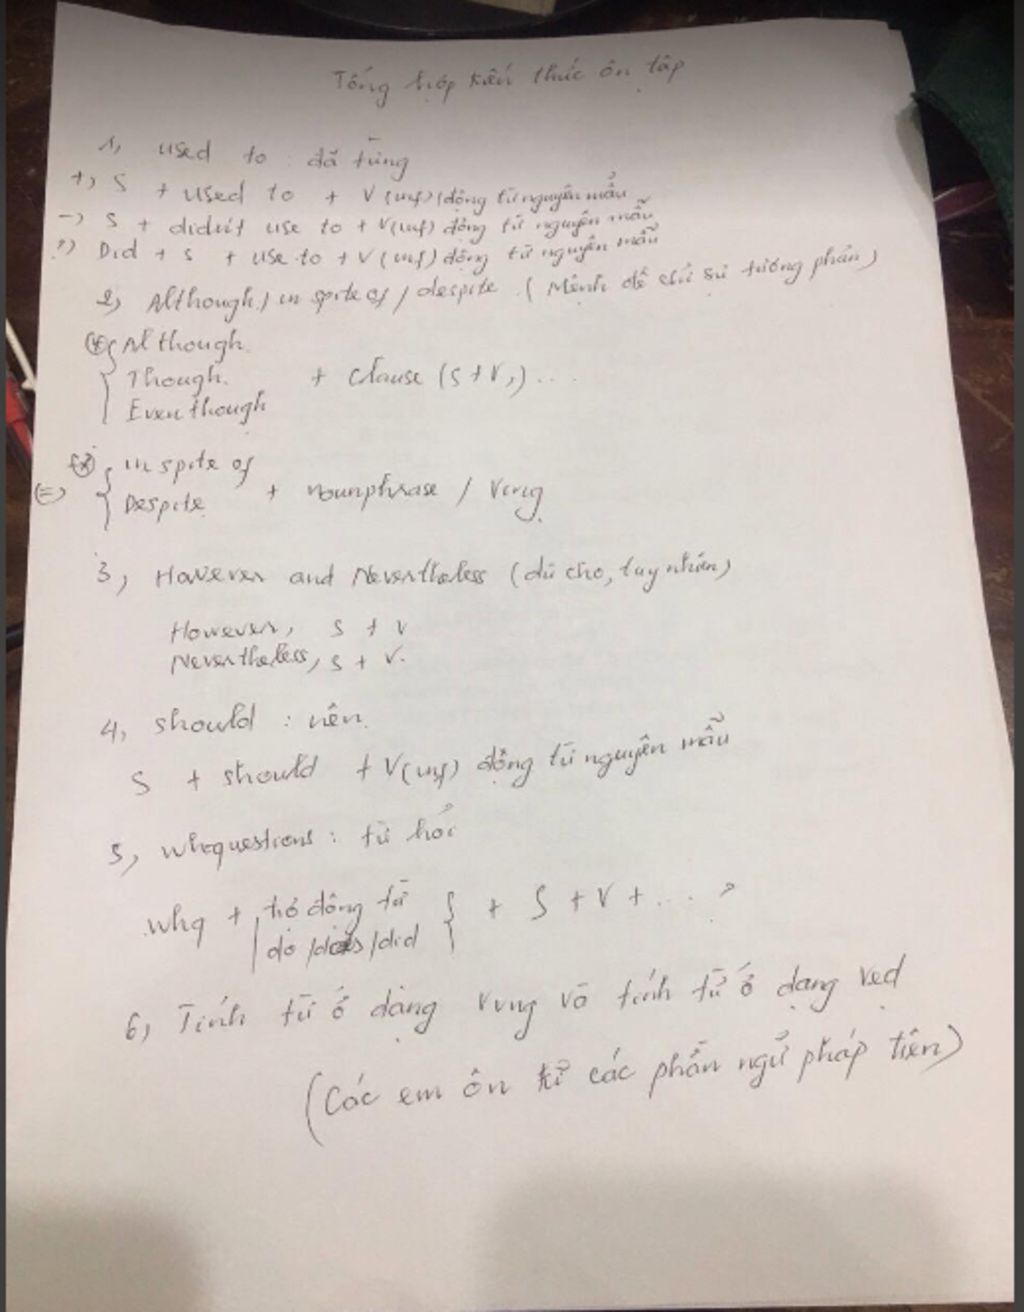 Tổng hợp kiến thức ôn tập
1, used to : đã từng
+, S + used to + V(inf) (động từ nguyên mẫu
-) S + didn't use to + V(inf) động từ nguyên mẫu
?) Did + S + use to + V(inf) động từ nguyên mẫu
2, Although / in spite of / despite. (Mệnh đề chỉ sự tương phản)
(*) Although
Though. + clause (S + V,) ...
Even though
(*) in spite of
(=) Despite + nounphrase / Ving
3, However and Nevertheless (dù cho, tuy nhiên)
However, S + V
Nevertheless, S + V.
4, should : nên.
S + should + V(inf) động từ nguyên mẫu
5, whquestions : từ hỏi
whq + trợ động từ + S + V + .... ?
do / does / did
6, Tính từ ở dạng Ving và tính từ ở dạng Ved
(Các em ôn kĩ các phần ngữ pháp trên)